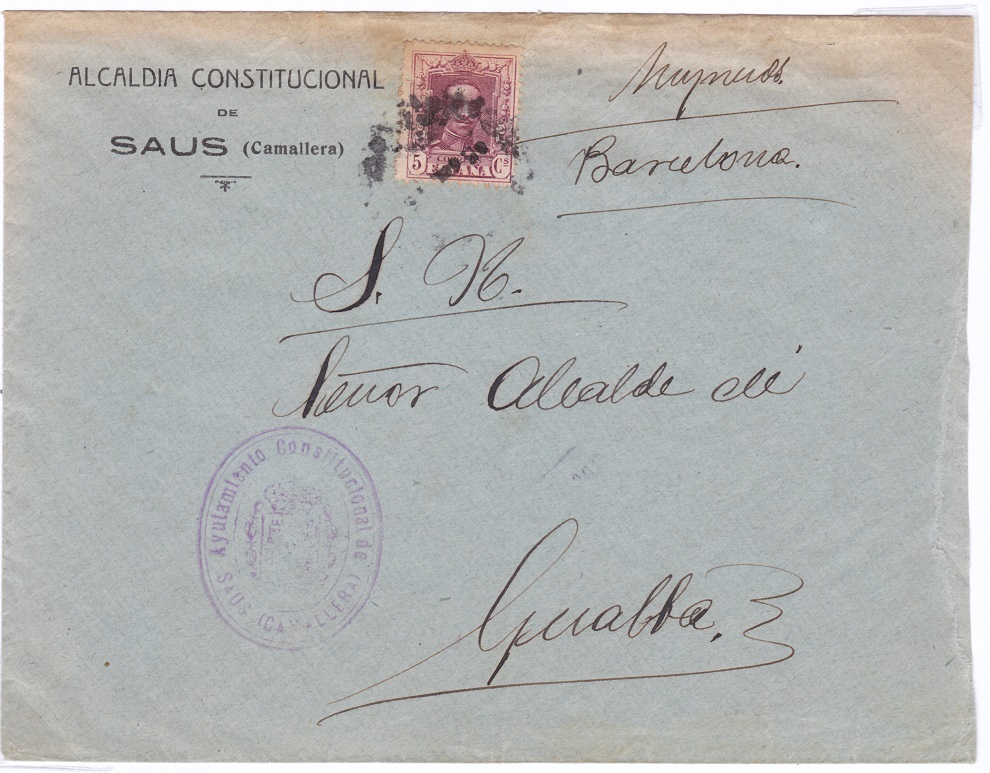 ALCALDIA CONSTITUCIONAL
DE
SAUS (Camallera)
5 Cs
CORREOS
ESPAÑA
Impresos.
Barcelona.
S. N.
Señor Alcalde de
Gualba.
Ayuntamiento Constitucional de
SAUS (CAMALLERA)